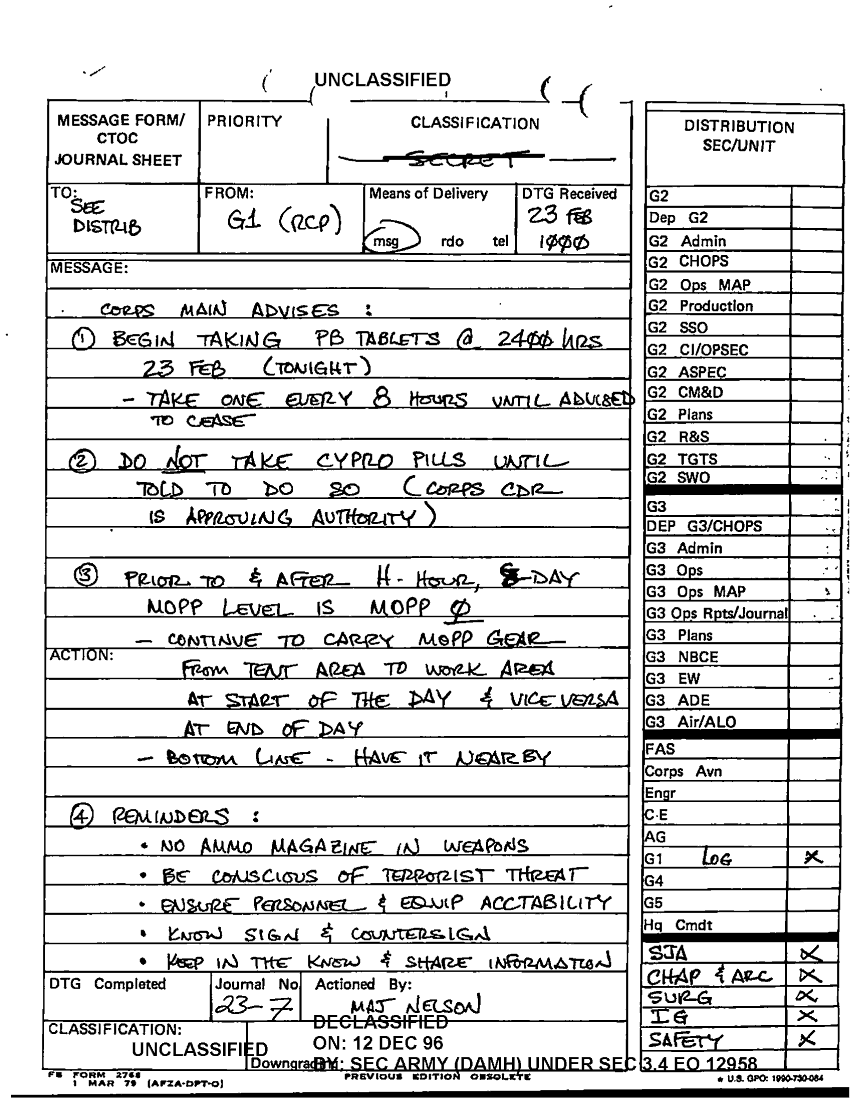 UNCLASSIFIED
MESSAGE FORM/
CTOC
JOURNAL SHEET
PRIORITY
CLASSIFICATION
SECRET
TO:
SEE
DISTRIB
FROM:
G1 (RCP)
Means of Delivery
msg rdo tel
DTG Received
23 FEB
1000
MESSAGE:
CORPS MAIN ADVISES :
① BEGIN TAKING PB TABLETS @ 2400 HRS
23 FEB (TONIGHT)
- TAKE ONE EVERY 8 HOURS UNTIL ADVISED
TO CEASE
② DO NOT TAKE CYPRO PILLS UNTIL
TOLD TO DO SO (CORPS CDR
IS APPROVING AUTHORITY)
③ PRIOR TO & AFTER H-HOUR, G-DAY
MOPP LEVEL IS MOPP 0
- CONTINUE TO CARRY MOPP GEAR
ACTION:
FROM TENT AREA TO WORK AREA
AT START OF THE DAY & VICE VERSA
AT END OF DAY
- BOTTOM LINE - HAVE IT NEARBY
④ REMINDERS :
• NO AMMO MAGAZINE IN WEAPONS
• BE CONSCIOUS OF TERRORIST THREAT
• ENSURE PERSONNEL & EQUIP ACCTABILITY
• KNOW SIGN & COUNTERSIGN
• KEEP IN THE KNOW & SHARE INFORMATION
DTG Completed
Journal No
23-7
Actioned By:
MAJ NELSON
CLASSIFICATION:
UNCLASSIFIED
DECLASSIFIED
ON: 12 DEC 96
BY: SEC ARMY (DAMH) UNDER SEC 3.4 EO 12958
FB FORM 2768
1 MAR 79 (AFZA-DPT-O)
PREVIOUS EDITION OBSOLETE
★ U.S. GPO: 1990-730-084
DISTRIBUTION
SEC/UNIT
G2
Dep G2
G2 Admin
G2 CHOPS
G2 Ops MAP
G2 Production
G2 SSO
G2 CI/OPSEC
G2 ASPEC
G2 CM&D
G2 Plans
G2 R&S
G2 TGTS
G2 SWO
G3
DEP G3/CHOPS
G3 Admin
G3 Ops
G3 Ops MAP
G3 Ops Rpts/Journal
G3 Plans
G3 NBCE
G3 EW
G3 ADE
G3 Air/ALO
FAS
Corps Avn
Engr
C-E
AG
G1 LOG X
G4
G5
Hq Cmdt
SJA X
CHAP & ARC X
SURG X
IG X
SAFETY X